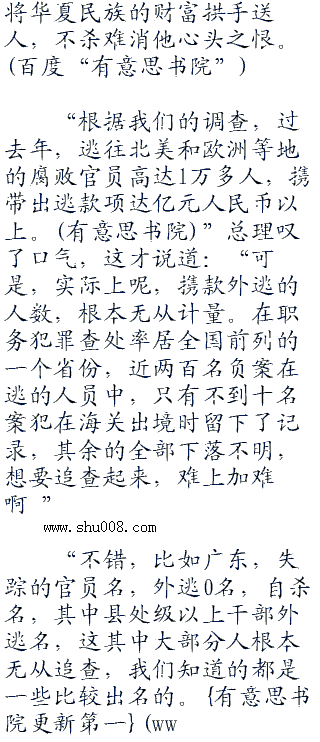 将华夏民族的财富拱手送
人，不杀难消他心头之恨。
(百度“有意思书院”)
“根据我们的调查，过
去年，逃往北美和欧洲等地
的腐败官员高达1万多人，携
带出逃款项达亿元人民币以
上。(有意思书院)”总理叹
了口气，这才说道：“可
是，实际上呢，携款外逃的
人数，根本无从计量。在职
务犯罪查处率居全国前列的
一个省份，近两百名负案在
逃的人员中，只有不到十名
案犯在海关出境时留下了记
录，其余的全部下落不明，
想要追查起来，难上加难
啊 ”
www.shu008.com
“不错，比如广东，失
踪的官员名，外逃0名，自杀
名，其中县处级以上干部外
逃名，这其中大部分人根本
无从追查，我们知道的都是
一些比较出名的。{有意思书
院更新第一}(ww